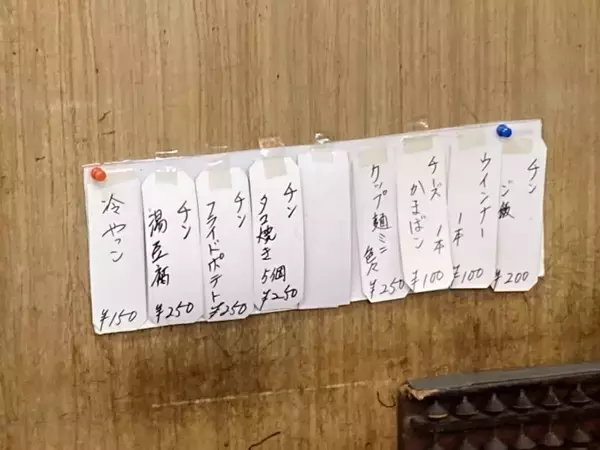 チン
ジ飯
¥200
ウインナー
1本
¥100
チーズ
かまぼこ
1本
¥100
カップ麺ミニ
¥250
チン
タコ焼き
5個
¥250
チン
フライドポテト
¥250
チン
湯豆腐
¥250
冷やっこ
¥150